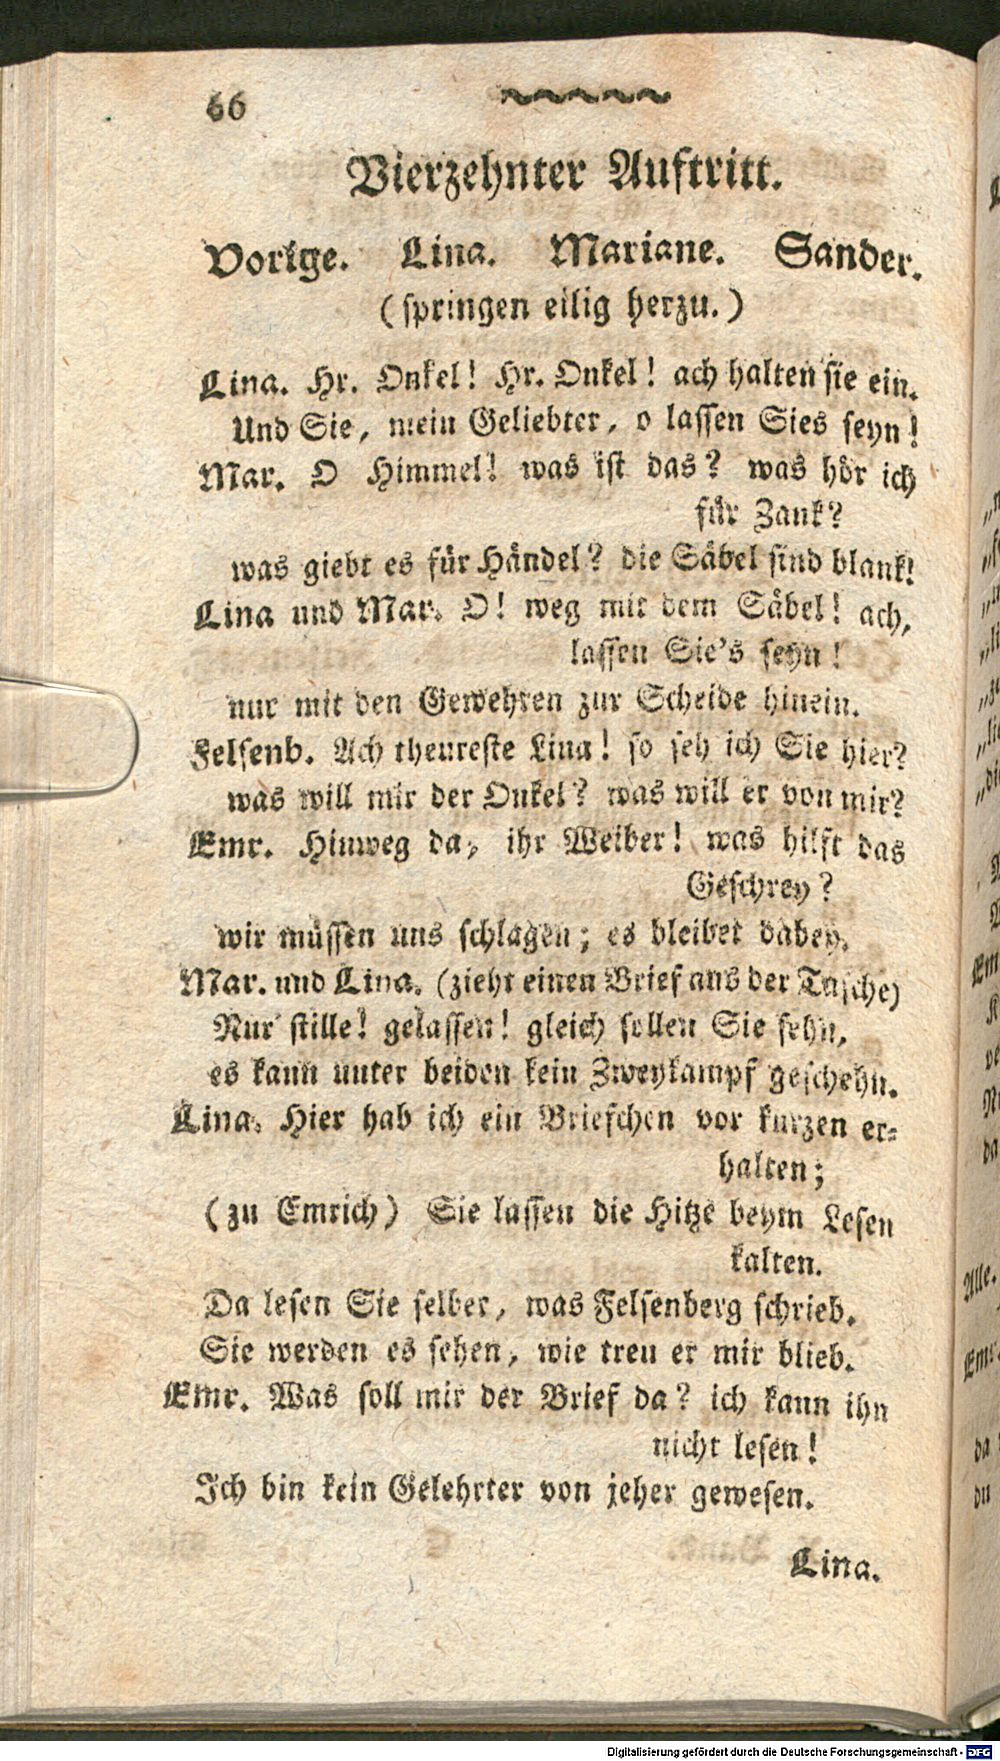 66
Vierzehnter Auftritt.
Vorige. Lina. Mariane. Sander.
(springen eilig herzu.)
Lina. Hr. Onkel! Hr. Onkel! ach halten sie ein.
Und Sie, mein Geliebter, o lassen Sies seyn!
Mar. O Himmel! was ist das? was hör ich
für Zank?
was giebt es für Händel? die Säbel sind blank!
Lina und Mar. O! weg mit dem Säbel! ach,
lassen Sie's seyn!
nur mit den Gewehren zur Scheide hinein.
Felsenb. Ach theureste Lina! so seh ich Sie hier?
was will mir der Onkel? was will er von mir?
Emr. Hinweg da, ihr Weiber! was hilft das
Geschrey?
wir müssen uns schlagen; es bleibet dabey.
Mar. und Lina. (zieht einen Brief aus der Tasche)
Nur stille! gelassen! gleich sollen Sie sehn,
es kann unter beiden kein Zweykampf geschehn.
Lina. Hier hab ich ein Briefchen vor kurzen er-
halten;
(zu Emrich) Sie lassen die Hitze beym Lesen
kalten.
Da lesen Sie selber, was Felsenberg schrieb.
Sie werden es sehen, wie treu er mir blieb.
Emr. Was soll mir der Brief da? ich kann ihn
nicht lesen!
Ich bin kein Gelehrter von jeher gewesen.
Lina.
Alle.
da
du
Digitalisierung gefördert durch die Deutsche Forschungsgemeinschaft - DFG